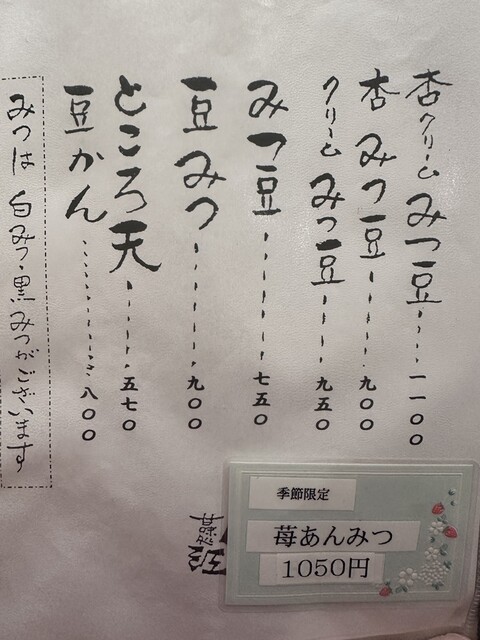 杏クリームみつ豆 一一〇〇
杏みつ豆 九〇〇
クリームみつ豆 九五〇
みつ豆 七五〇
豆みつ 九〇〇
ところ天 五七〇
豆かん 八〇〇
みつは 白みつ・黒みつがございます
季節限定
苺あんみつ
1050円